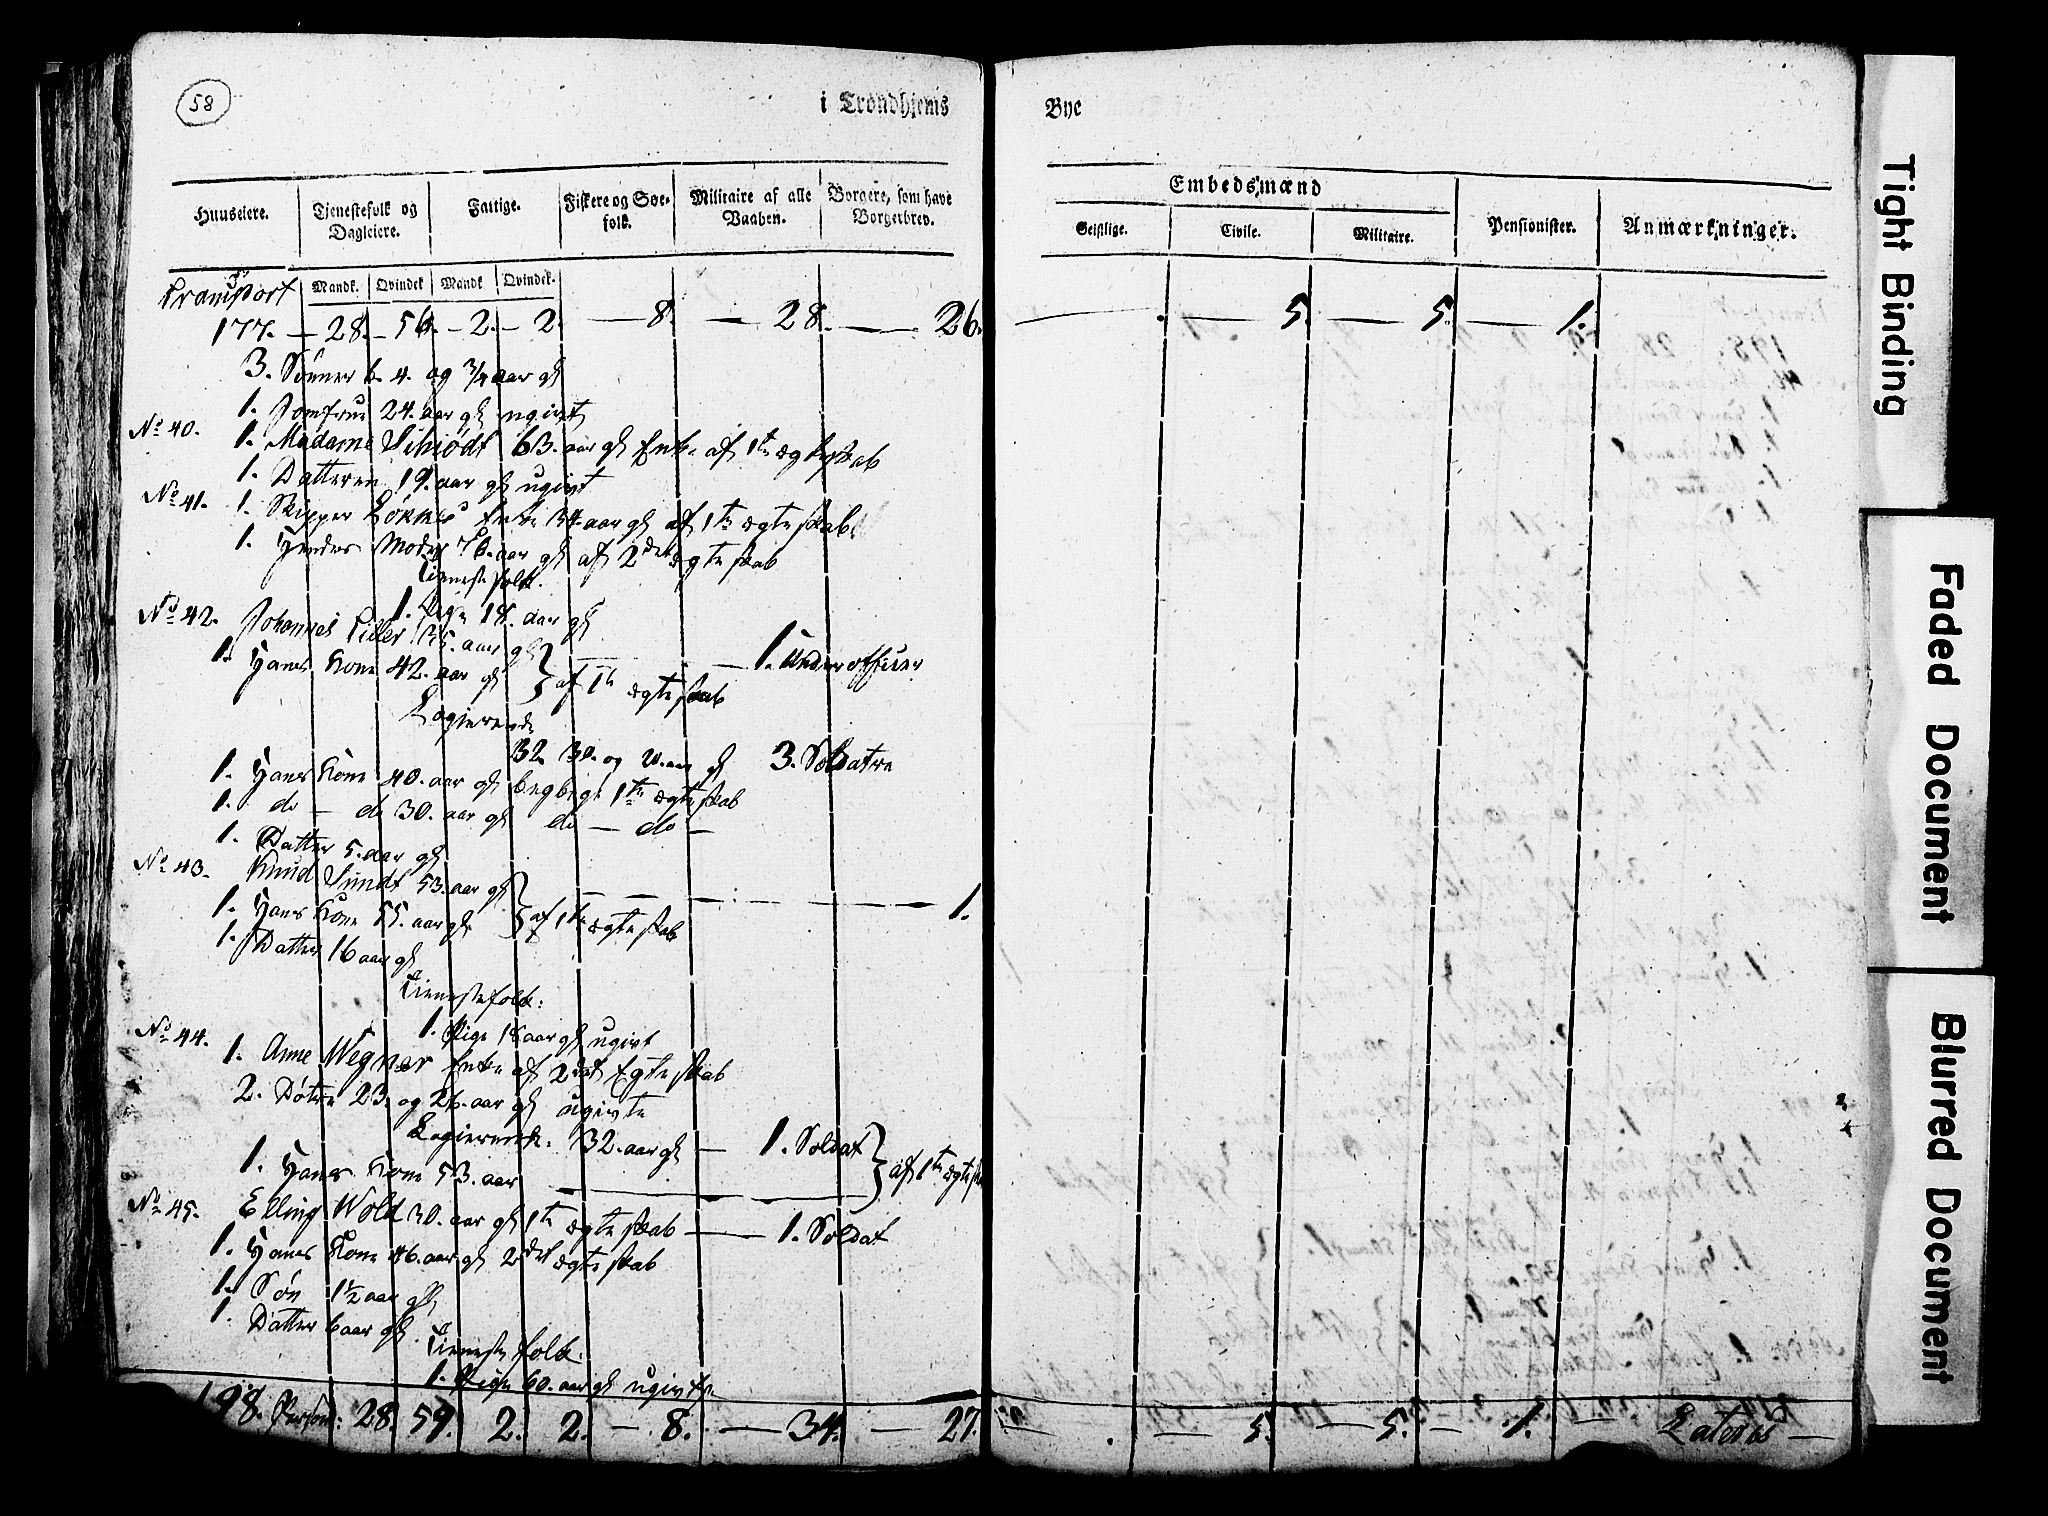 58
i Trondhjems
Bye
Huuseiere.
Tjenestefolk og Dagleiere.
Fattige.
Fiskere og Søefolk.
Militaire af alle Vaaben.
Borgere, som have Borgerbrev.
Embedsmænd
Geistlige.
Civile.
Militaire.
Pensionister.
Anmærkninger.
Mandk. Qvindek Mandk Qvindek.
Transport
177. — 28. — 56. — 2. — 2. — 8. — 28. — 26. — . — 5. — 5. — 1.
3. Sønner 6. 4. og 3/4 aar gl
1. Jomfrue 24. aar gl ugivt
No 40. 1. Madame Schiødt 63. aar gl Enke af 1te ægteskab
1. Datteren 19. aar gl ugivt
No 41. 1. Skipper Løknes Enke 34. aar gl af 1te ægteskab.
1. Hendes Moder 76. aar gl af 2det ægteskab
Tienestefolk.
1. Pige 18. aar gl
No 42. Johannes Tiller 35. aar gl — 1. Underofficer
1. Hans Kone 42. aar gl } af 1te ægteskab
Logierende
32. 30. og 20. aar gl 3. Soldatre
1. Hans Kone 40. aar gl begge 1te ægteskab
1. do — do 30. aar gl do — do —
1. Datter 5. aar gl
No 43. Knud Sundt 53. aar gl — 1.
1. Hans Kone 55. aar gl } af 1te ægteskab
1. Datter 16 aar gl
Tienestefolk:
1. Pige 18 aar gl ugivt
No 44. 1. Anne Wegner Enke af 2det Egteskab
2. Døtre 23. og 26. aar gl ugivte
Logierende: 32. aar gl — 1. Soldat
1. Hans Kone 53. aar } af 1te ægtesk
No 45. Elling Wold 30. aar gl 1te ægteskab — 1. Soldat
1. Hans Kone 46. aar gl 2det ægteskab
1. Søn 1 1/2 aar gl
1. Datter 6 aar gl
Tienestefolk.
1. Pige 60. aar gl ugivt
198. Person: 28. 59. 2. 2. — 8. — 34. — 27. — . — 5. — 5. — 1. — Lateris —
Tight Binding
Faded Document
Blurred Document